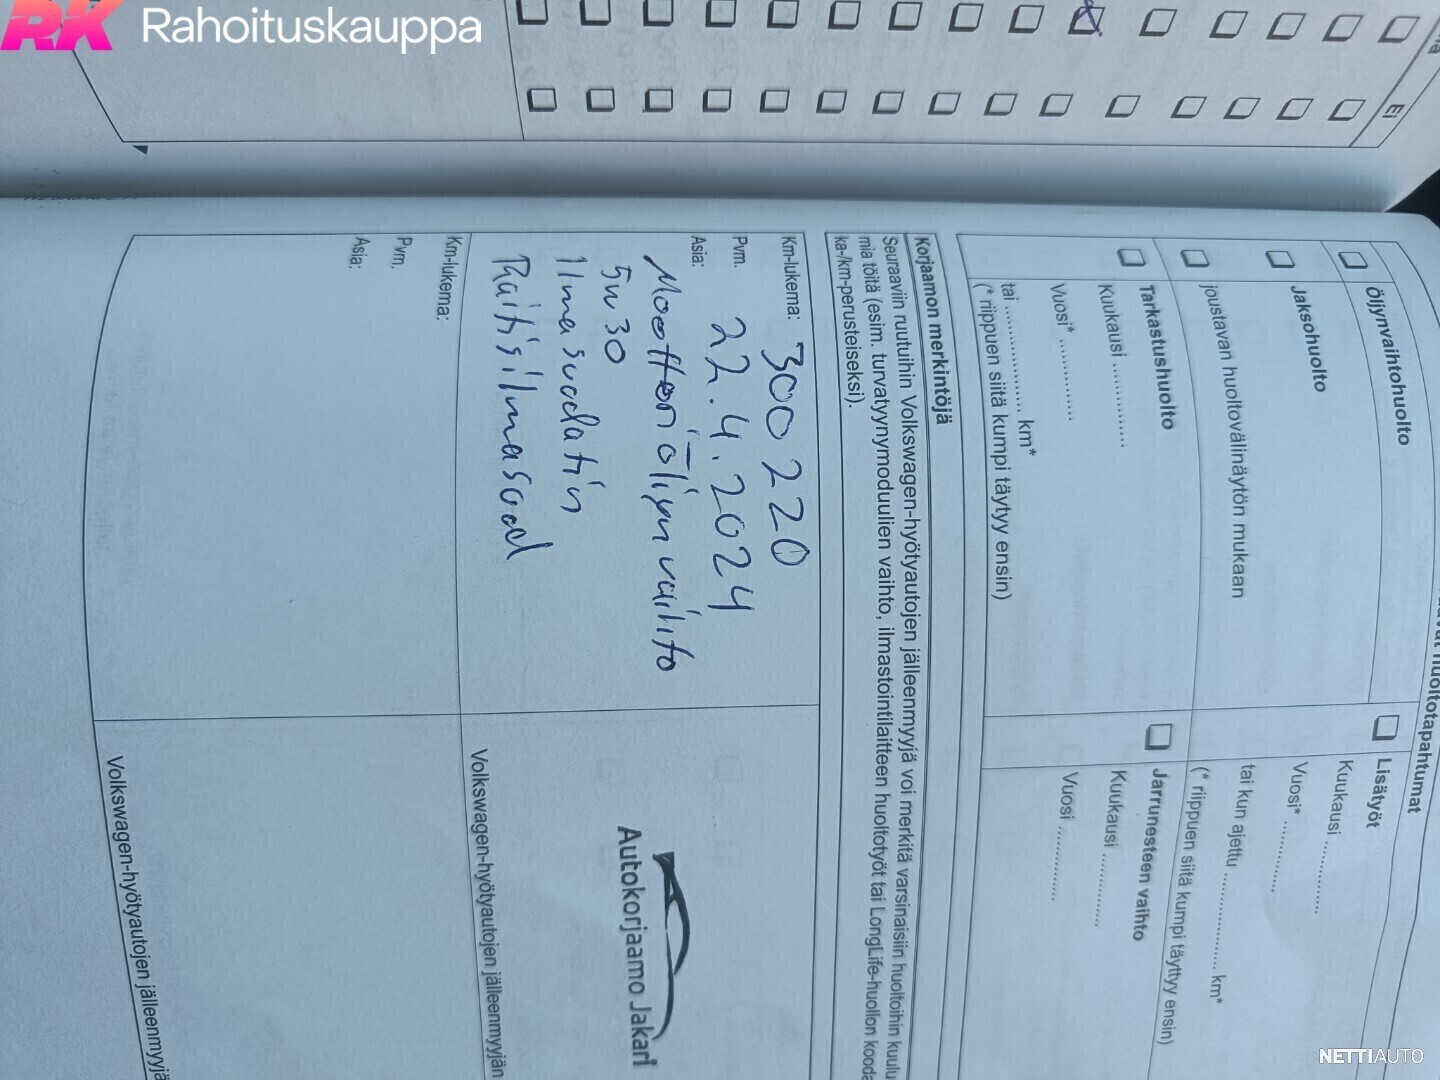 RK Rahoituskauppa
Ei
huoltotapahtumat
Öljynvaihtohuolto
Jaksohuolto
joustavan huoltovälinäytön mukaan
Tarkastushuolto
Kuukausi ................
Vuosi* ................
tai ..................... km*
(* riippuen siitä kumpi täytyy ensin)
Lisätyöt
Kuukausi ................
Vuosi* ................
tai kun ajettu ..................... km*
(* riippuen siitä kumpi täyttyy ensin)
Jarrunesteen vaihto
Kuukausi ................
Vuosi ................
Korjaamon merkintöjä
Seuraaviin ruutuihin Volkswagen-hyötyautojen jälleenmyyjä voi merkitä varsinaisiin huoltoihin kuulu
mia töitä (esim. turvatyynymoduulien vaihto, ilmastointilaitteen huoltotyöt tai LongLife-huollon kooda
ka-/km-perusteiseksi).
Km-lukema: 300 220
Pvm. 22.4.2024
Asia: Moottoriöljynvaihto
5w30
Ilmasuodatin
Raitisilmasuod
Autokorjaamo Jakari
Volkswagen-hyötyautojen jälleenmyyjän
Km-lukema:
Pvm.
Asia:
Volkswagen-hyötyautojen jälleenmyyjä
NETTIAUTO